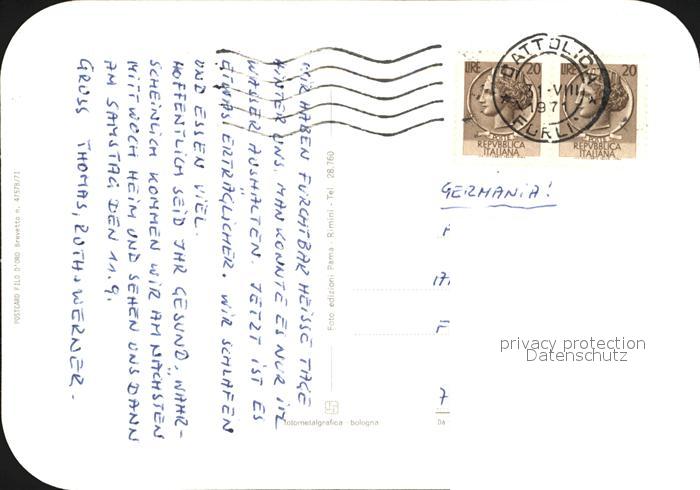 WIR HABEN FURCHTBAR HEISSE TAGE
HINTER UNS. MAN KONNTE ES NUR IM
WASSER AUSHALTEN. JETZT IST ES
ETWAS ERTRÄGLICHER. WIR SCHLAFEN
UND ESSEN VIEL.
HOFFENTLICH SEID IHR GESUND, WAHR-
SCHEINLICH KOMMEN WIR AM NÄCHSTEN
MITTWOCH HEIM UND SEHEN UNS DANN
AM SAMSTAG, DEN 11.9.
GRUSS THOMAS, RUTH + WERNER.
POSTCARD FILO D'ORO Brevetto n. 47578/71
Foto edizioni Pama - Rimini - Tel. 28.760
fotometalgrafica - bologna
LIRE 20
LIRE 20
REPVBBLICA
ITALIANA
REPVBBLICA
ITALIANA
CATTOLICA
31-VIII
1971
FORLI
GERMANIA!
privacy protection
Datenschutz